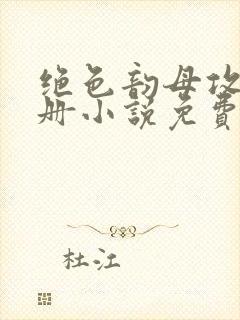 绝色韵母攻
册小说免費
杜江